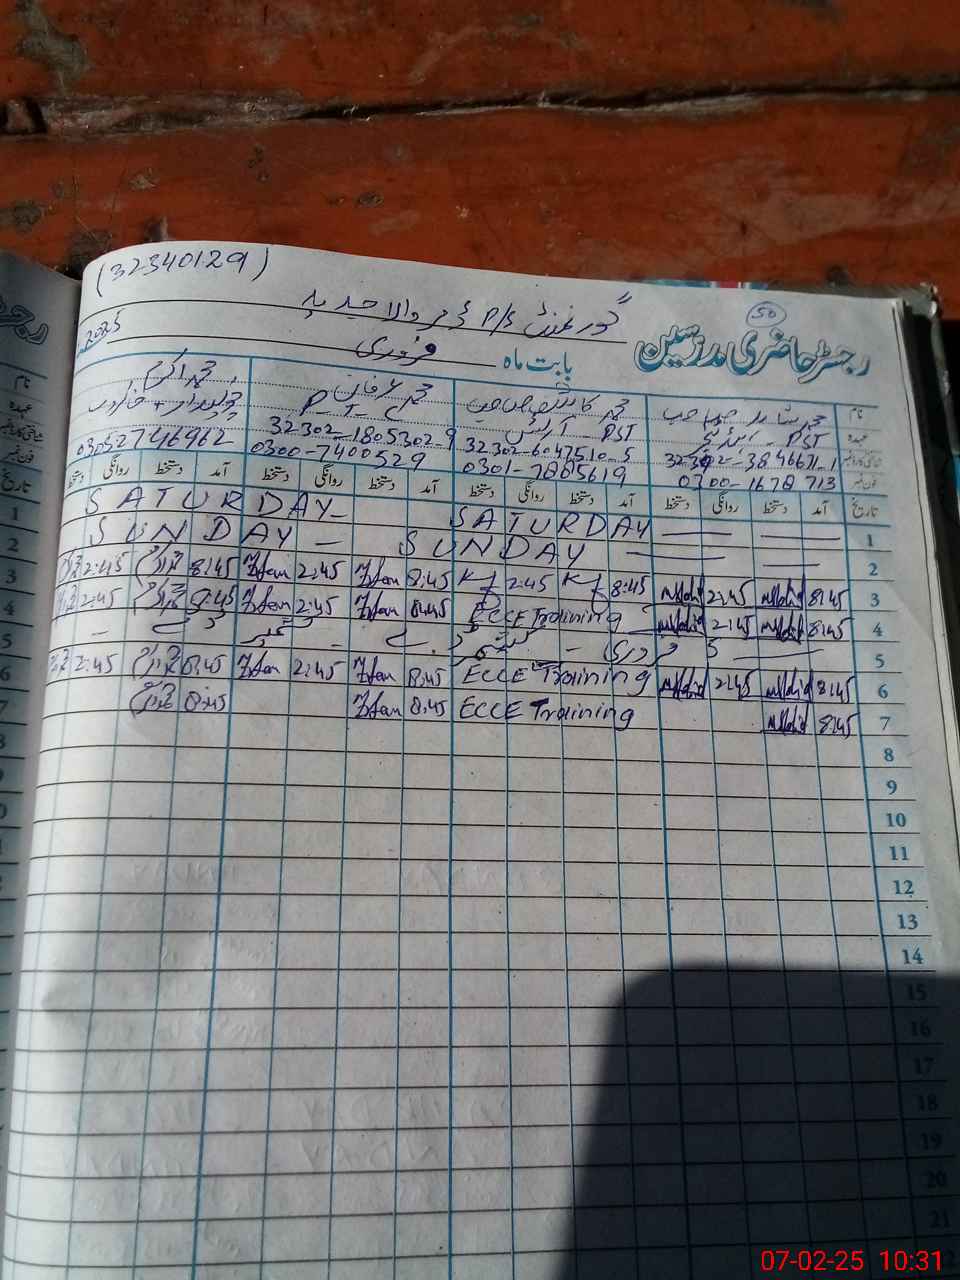 (32340129)
گورنمنٹ P/S والا جدید
50
رجسٹر حاضری مدرسین بابت ماہ فروری 2025
نام محمد صاحب محمد کاشف صاحب محمد عرفان محمد اکرم
عہدہ PST - PST - چوکیدار + خاکروب
32302-3846671-1 32302-6047510-5 32302-1805302-9
فون نمبر 0300-1678713 0301-7885619 0300-7400529 03052746962
تاریخ آمد دستخط روانگی دستخط آمد دستخط روانگی دستخط آمد دستخط روانگی دستخط آمد دستخط روانگی دستخط
1 SATURDAY SATURDAY
2 SUNDAY SUNDAY
3 8:45 2:45 8:45 2:45 Irfan 8:45 Irfan 2:45 8:45 2:45
4 8:45 2:45 ECCE Training Irfan 8:45 Irfan 2:45 8:45 2:45
5 5 فروری یوم کشمیر
6 8:45 2:45 ECCE Training Irfan 8:45 Irfan 2:45 8:45 2:45
7 8:45 ECCE Training Irfan 8:45 8:45
8
9
10
11
12
13
14
15
16
17
18
19
20
21
07-02-25 10:31